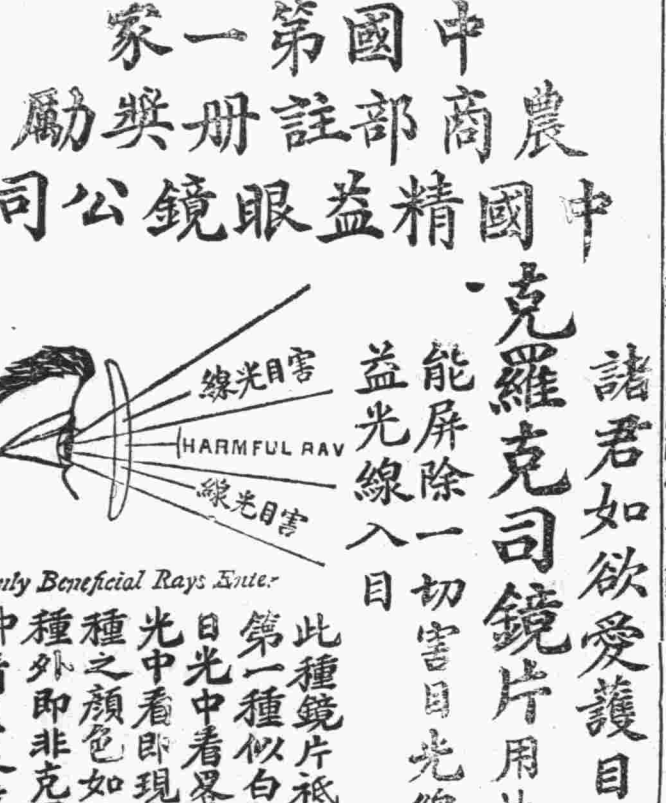 中國第一家
農商部註册奬勵
中國精益眼鏡公司
諸君如欲愛護目
克羅克司鏡片用
能屏除一切害目光線
益光線入目
害目光線
HARMFUL RAY
害目光線
Only Beneficial Rays Enter
此種鏡片祗
第一種似白
日光中看畧
光中看即現
種之顏色如
種外即非克